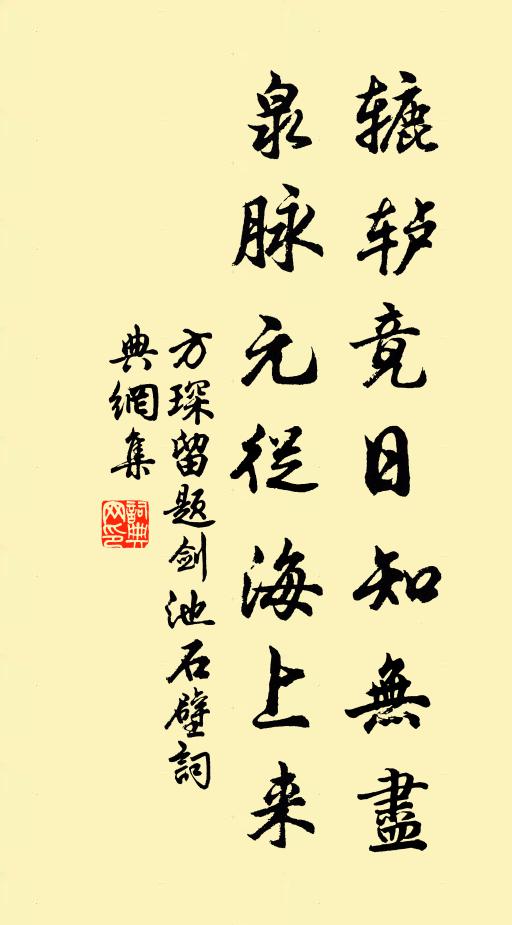 辘轳竟日知無盡
泉脉元從海上来
方琛留题剑池石壁詞
典網集
詞典
网印